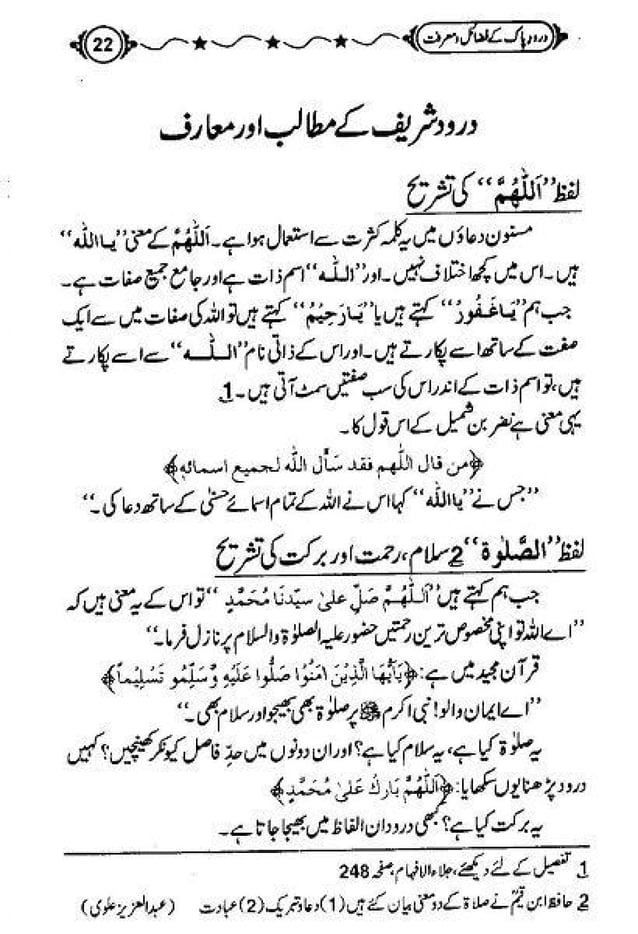 درود پاک کے فضائل و معرفت
22
درود شریف کے مطالب اور معارف
لفظ ”اَللّٰهُمَّ“ کی تشریح
مسنون دعاؤں میں یہ کلمہ کثرت سے استعمال ہوا ہے۔ اَللّٰهُمَّ کے معنی ”یا اللّٰه“
ہیں۔ اس میں کچھ اختلاف نہیں۔ اور ”اللّٰه“ اسم ذات ہے اور جامع جمیع صفات ہے۔
جب ہم ”یَا غَفُورُ“ کہتے ہیں یا ”یَا رَحِیْمُ“ کہتے ہیں تو اللہ کی صفات میں سے ایک
صفت کے ساتھ اسے پکارتے ہیں۔ اور اس کے ذاتی نام ”اللّٰه“ سے اسے پکارتے
ہیں، تو اسم ذات کے اندر اس کی سب صفتیں سمٹ آتی ہیں۔ 1
یہی معنی ہے نضر بن شمیل کے اس قول کا۔
﴿من قال اللّٰهم فقد سَأَل اللّٰه لجمیع اسمائهٖ﴾
”جس نے ”یا اللّٰه“ کہا اس نے اللہ کے تمام اسمائے حسنیٰ کے ساتھ دعا کی۔“
لفظ ”الصَّلٰوة“ 2 سلام، رحمت اور برکت کی تشریح
جب ہم کہتے ہیں ”اَللّٰهُمَّ صَلِّ عَلیٰ سیِّدنَا مُحَمَّدٍ“ تو اس کے یہ معنی ہیں کہ
”اے اللہ تو اپنی مخصوص ترین رحمتیں حضور علیہ الصلوٰۃ والسلام پر نازل فرما۔“
قرآن مجید میں ہے: ﴿یٰٓاَیُّهَا الَّذِیْنَ اٰمَنُوْا صَلُّوا عَلَیْهِ وَسَلِّمُو تَسْلِیْماً﴾
”اے ایمان والو! نبی اکرم ﷺ پر صلوٰۃ بھی بھیجو اور سلام بھی۔“
یہ صلوٰۃ کیا ہے، یہ سلام کیا ہے؟ اور ان دونوں میں حدِّ فاصل کیونکر کھینچیں؟ کہیں
درود پڑھنا یوں سکھایا: ﴿اَللّٰهُمَّ بَارِكْ عَلیٰ مُحَمَّدٍ﴾
یہ برکت کیا ہے؟ کبھی درود ان الفاظ میں بھیجا جاتا ہے۔
1 تفصیل کے لئے دیکھئے، جلاء الافہام، صفحہ 248
2 حافظ ابن قیم نے صلاۃ کے دو معنی بیان کئے ہیں (1) دعا و تبریک (2) عبادت (عبدالعزیز علوی)